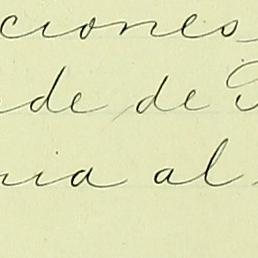 ciones
de de
ria al